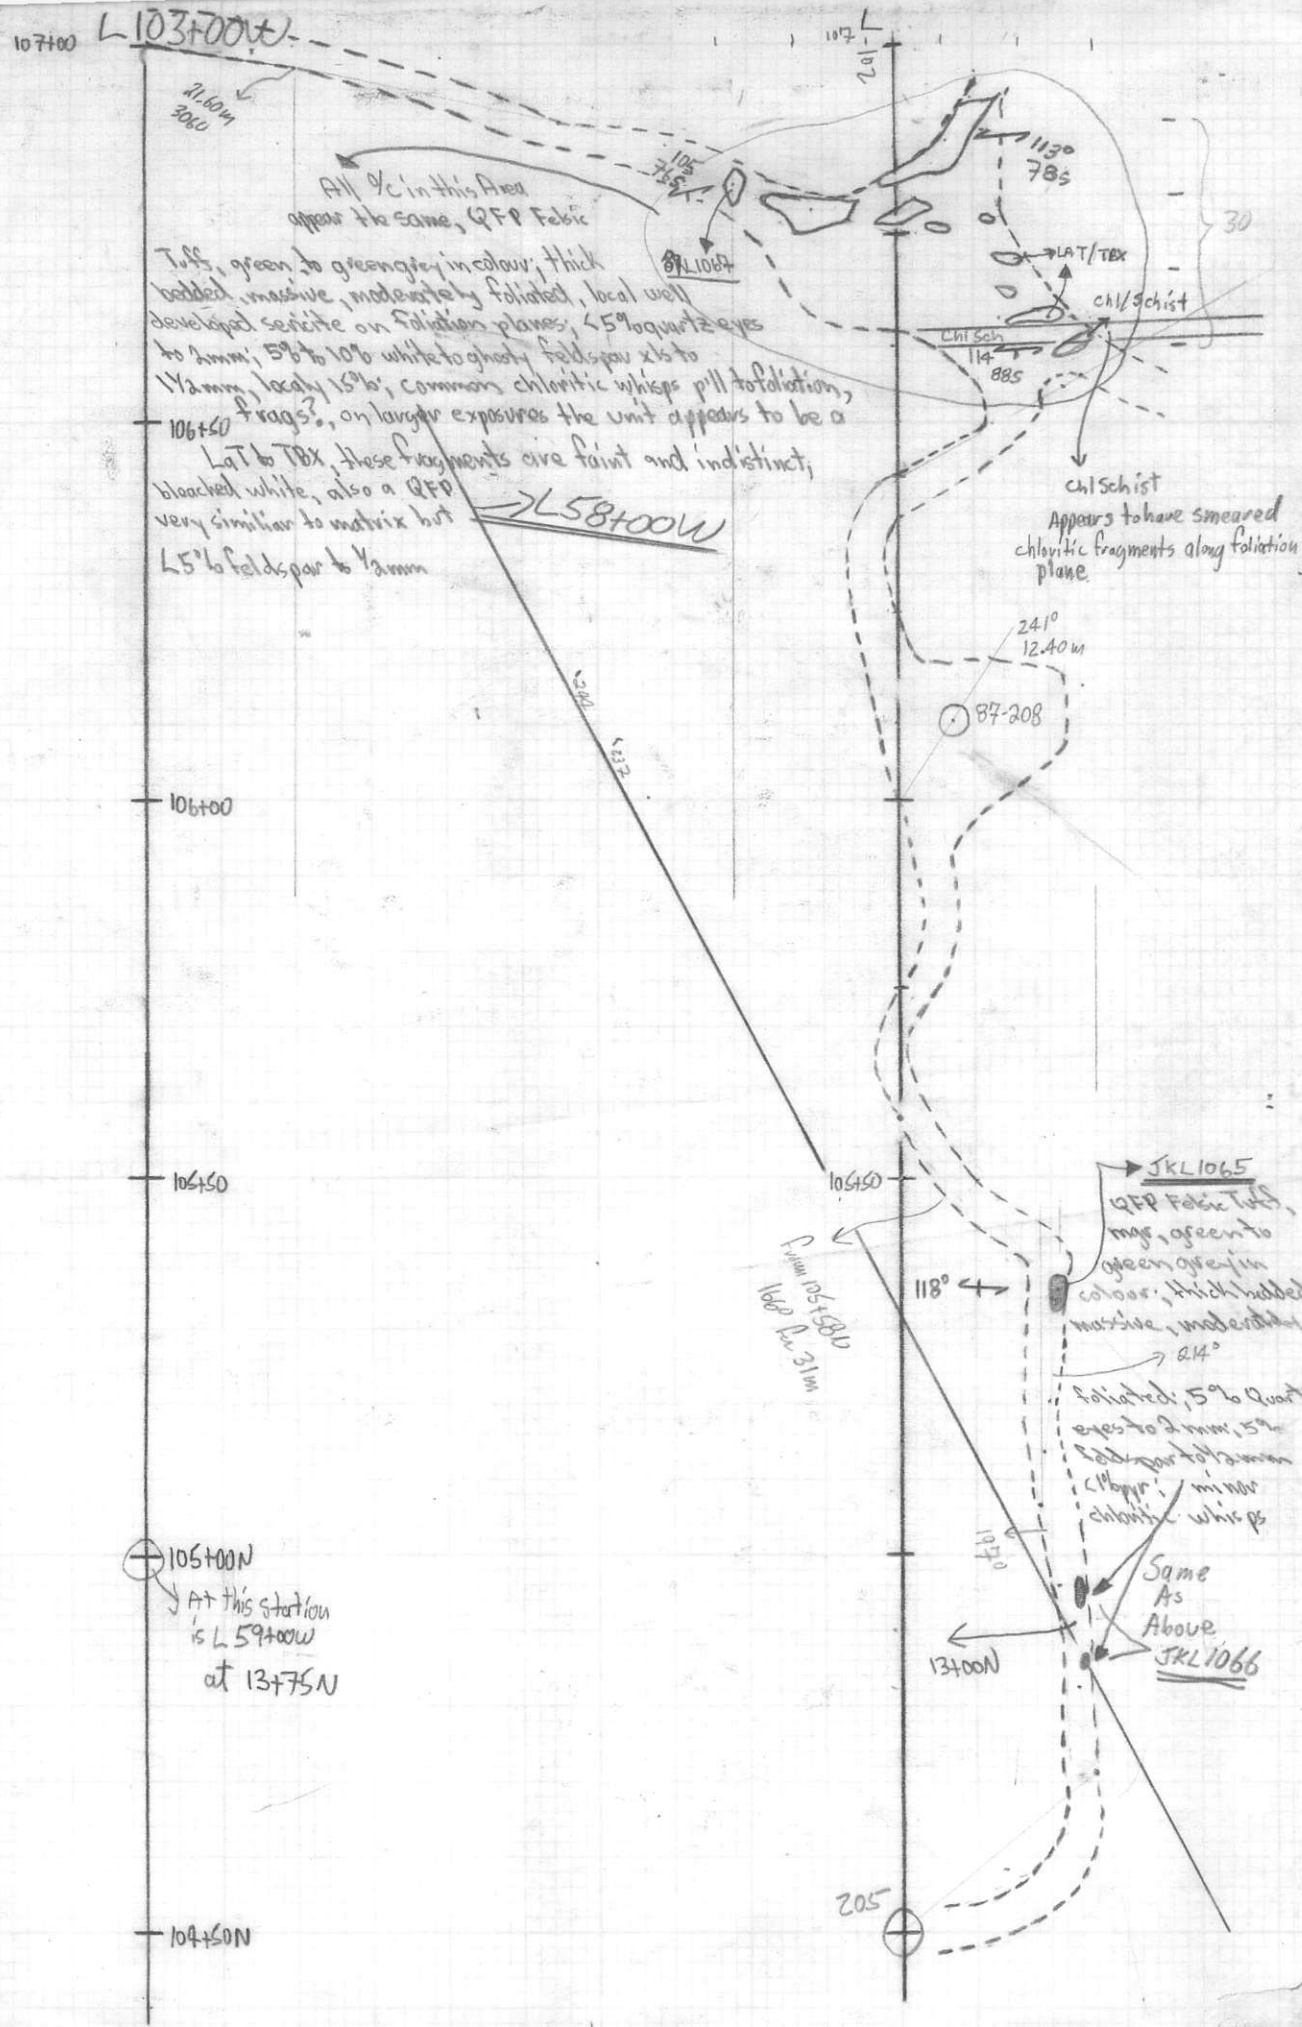 L103+00W
107+00
21.60m
306°
107
L
102
113°
78s
30
105
76s
All o/c in this Area
appear the same, QFP Felsic
Tuff, green to green grey in colour; thick
bedded, massive, moderately foliated, local well
developed sericite on foliation planes; <5% quartz eyes
to 2mm; 5% to 10% white to ghosty feldspar xls to
1½mm, localy 15%; common chloritic whisps p'll to foliation,
frags?, on larger exposures the unit appears to be a
106+50
LaT to TBX, these fragments are faint and indistinct;
bleached white, also a QFP
very similiar to matrix but
<5% feldspar to ½mm
JKL1067
LAT/TBX
chl/schist
Chl Sch
114
88s
L58+00W
chl schist
Appears to have smeared
chloritic fragments along foliation
plane
241°
12.40m
87-208
244
237
106+00
105+50
105+50
JKL1065
QFP Felsic Tuff,
mgr, green to
green grey in
colour; thick bedded
massive, moderately
214°
foliated; 5% Quart
eyes to 2mm; 5%
feldspar to ½mm
<1% pyr; minor
chloritic whisps
118°
from 105+58N
166° for 31m
197°
105+00N
At this station
is L59+00W
at 13+75N
Same
As
Above
JKL1066
13+00N
205
104+50N